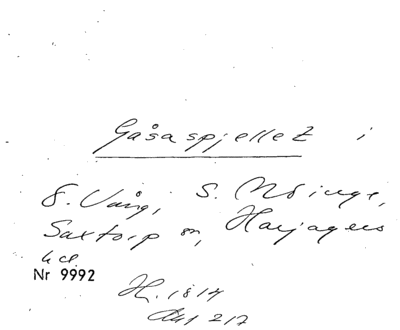 Gåsaspjellet i
S. Vång, S. Möinge,
Saxtorp sn, Harjagers
hd.
Nr 9992
H. 1814